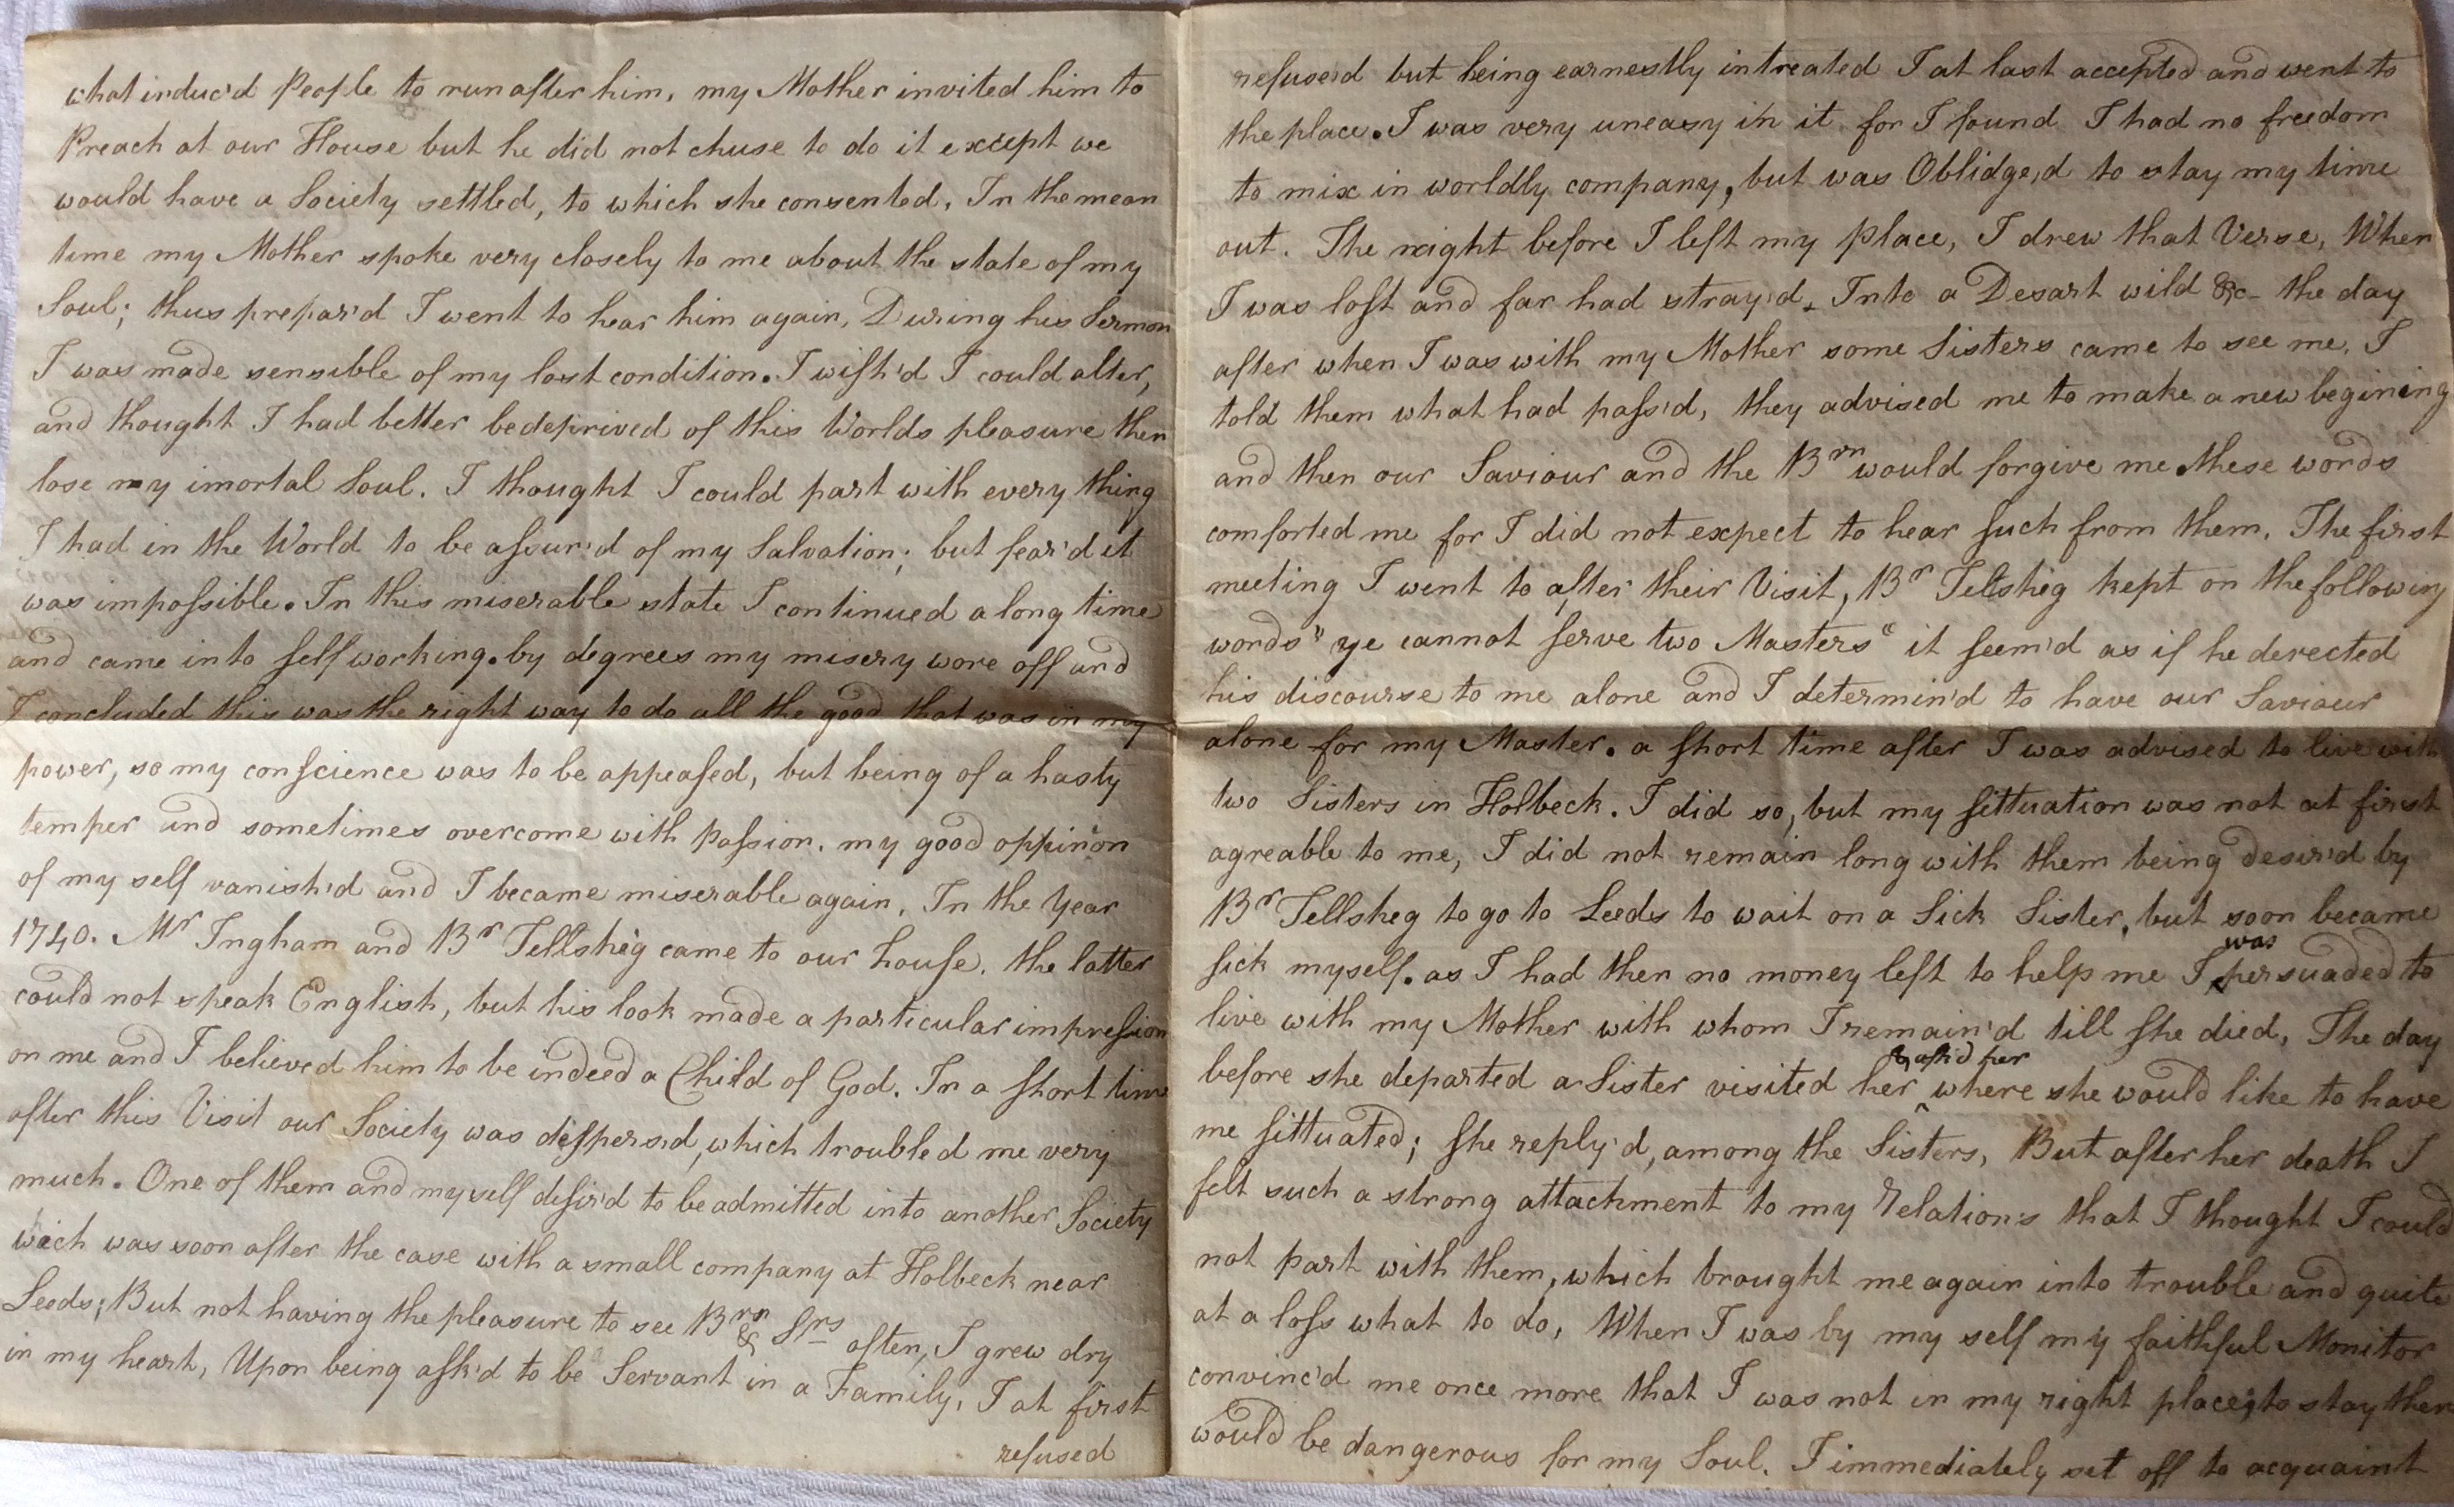 what induc'd People to run after him, my Mother invited him to
Preach at our House but he did not chuse to do it except we
would have a Society settled, to which she consented, In the mean
time my Mother spoke very closely to me about the state of my
Soul; thus prepar'd I went to hear him again, During his Sermon
I was made sensible of my lost condition. I wish'd I could alter,
and thought I had better be deprived of this Worlds pleasure then
lose my imortal Soul. I thought I could part with every thing
I had in the World to be assur'd of my Salvation; but fear'd it
was impossible. In this miserable state I continued a long time
and came into self working. by degrees my misery wore off and
I concluded this was the right way to do all the good that was in my
power, so my conscience was to be appeased, but being of a hasty
temper and sometimes overcome with Passion. my good oppinion
of my self vanish'd and I became miserable again, In the Year
1740. Mr Ingham and Br Tellsheg came to our house, the latter
could not speak English, but his look made a particular impression
on me and I believed him to be indeed a Child of God. In a short time
after this Visit our Society was dispers'd, which troubled me very
much. One of them and myself desir'd to be admitted into another Society
wich was soon after the case with a small company at Holbeck near
Leeds; But not having the pleasure to see Brn & Srs often, I grew dry
in my heart, Upon being ask'd to be Servant in a Family, I at first
refused
refuse'd but being earnestly intreated I at last accepted and went to
the place. I was very uneasy in it for I found I had no freedom
to mix in worldly company, but was Oblidge'd to stay my time
out. The night before I left my Place, I drew that Verse, When
I was lost and far had stray'd, Into a Desart wild &c- the day
after when I was with my Mother some Sisters came to see me, I
told them what had pass'd, they advised me to make a new begining
and then our Saviour and the Brn would forgive me these words
comforted me for I did not expect to hear such from them. The first
meeting I went to after their Visit, Br Tellsheg kept on the following
words "ye cannot serve two Masters" it seem'd as if he derected
his discourse to me alone and I determin'd to have our Saviour
alone for my Master. a short time after I was advised to live with
two Sisters in Holbeck. I did so, but my sittuation was not at first
agreable to me, I did not remain long with them being desir'd by
Br Tellsheg to go to Leeds to wait on a Sick Sister, but soon became
sick myself. as I had then no money left to help me I was persuaded to
live with my Mother with whom I remain'd till she died, The day
before she departed a Sister visited her & ask'd her where she would like to have
me sittuated; she reply'd, among the Sisters, But after her death I
felt such a strong attachment to my Relations that I thought I could
not part with them, which brought me again into trouble and quite
at a loss what to do, When I was by my self my faithful Monitor
convinc'd me once more that I was not in my right place; to stay then
would be dangerous for my Soul. I immediately set off to acquaint